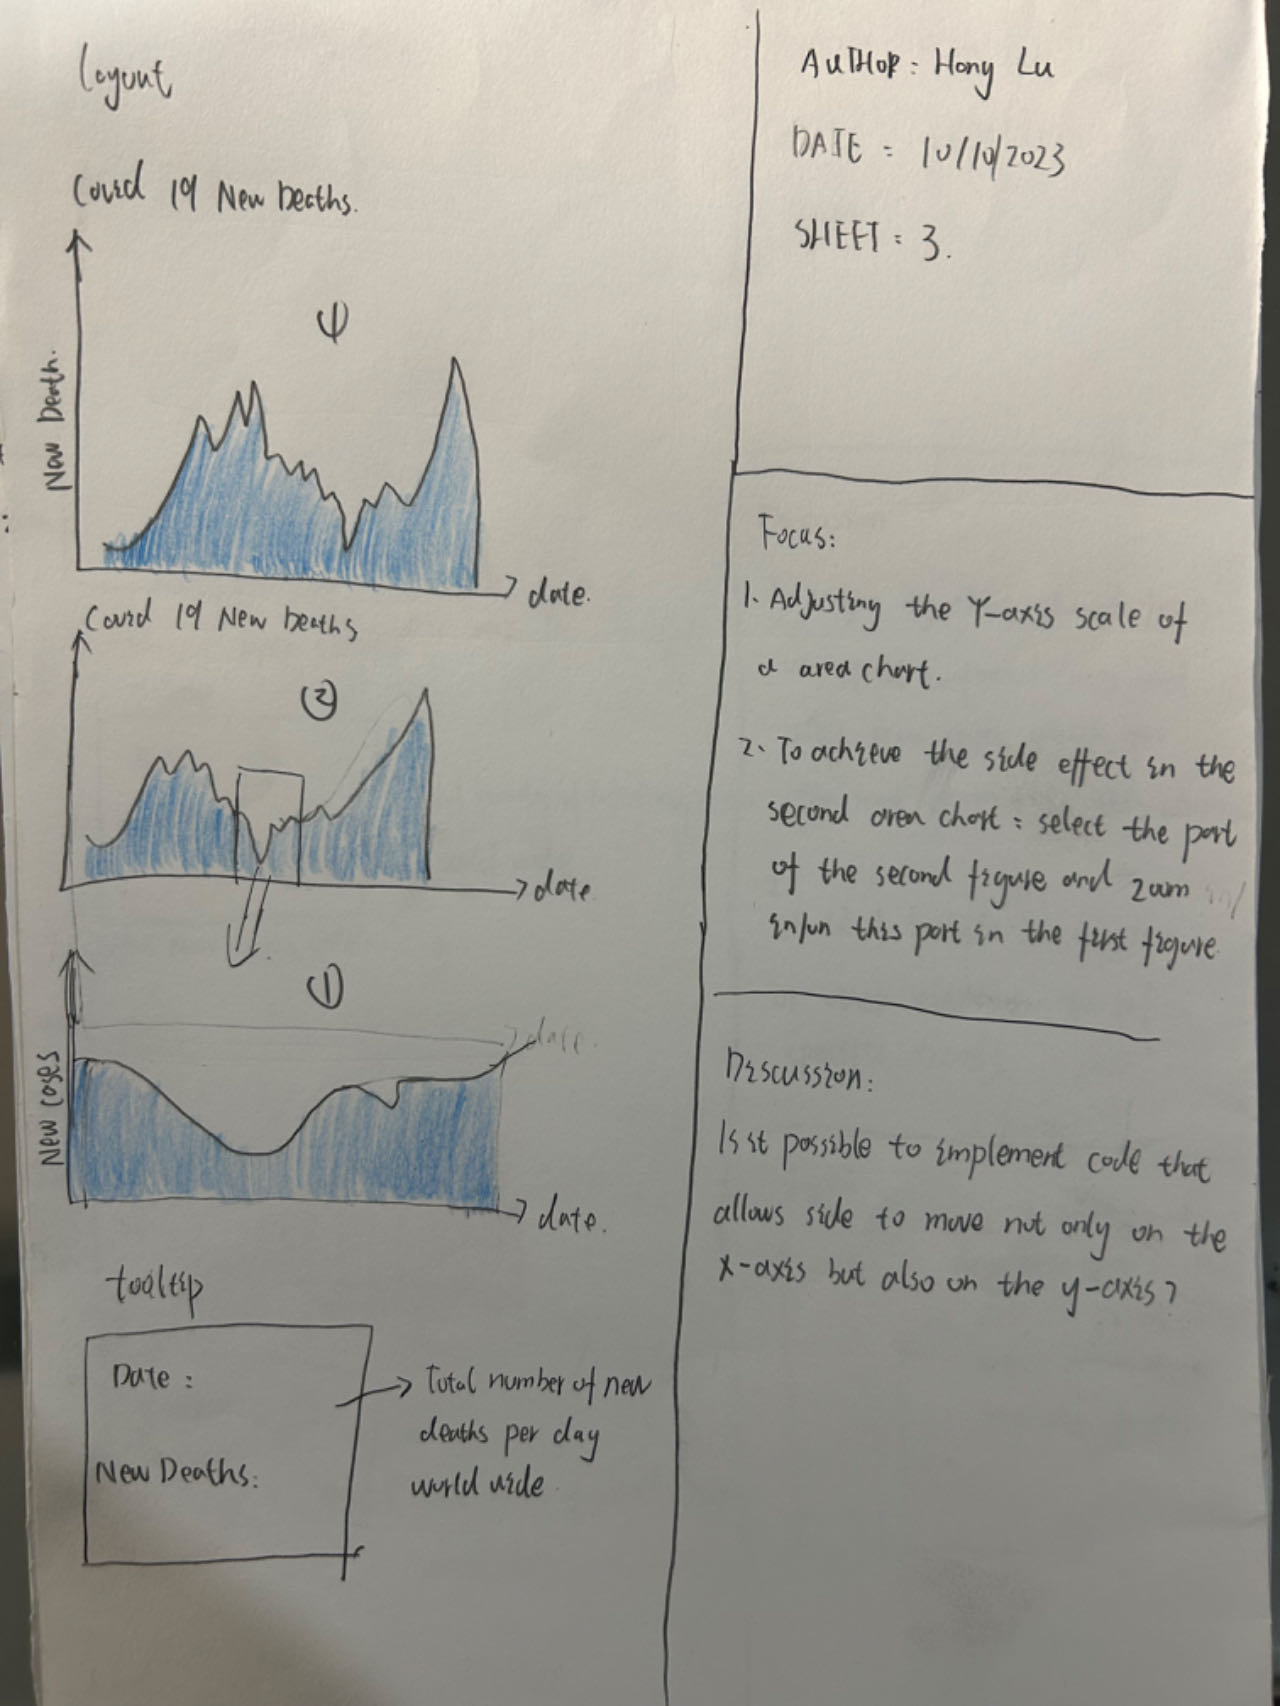 layout
Covid 19 New Deaths.
①
New Death.
date.
Covid 19 New Deaths
②
date
①
date.
New Cases
date.
tooltip
Date :
New Deaths:
Total number of new
deaths per day
world wide
AUTHOR : Hong Lu
DATE : 10/10/2023
SHEET : 3.
Focus:
1. Adjusting the Y-axis scale of
a area chart.
2. To achieve the side effect in the
second area chart : select the part
of the second figure and zoom
in/on this part in the first figure
Discussion:
Is it possible to implement code that
allows side to move not only on the
x-axis but also on the y-axis?